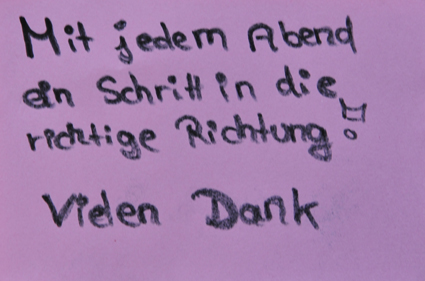 Mit jedem Abend
ein Schritt in die
richtige Richtung!
Vielen Dank